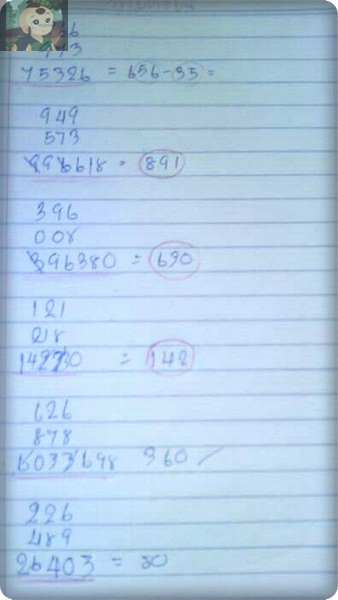 75326 = 656-35=
949
573
996618 = 891
396
008
396380 = 690
121
218
142730 = 142
626
878
6033698 360 /
226
489
26403 = 80